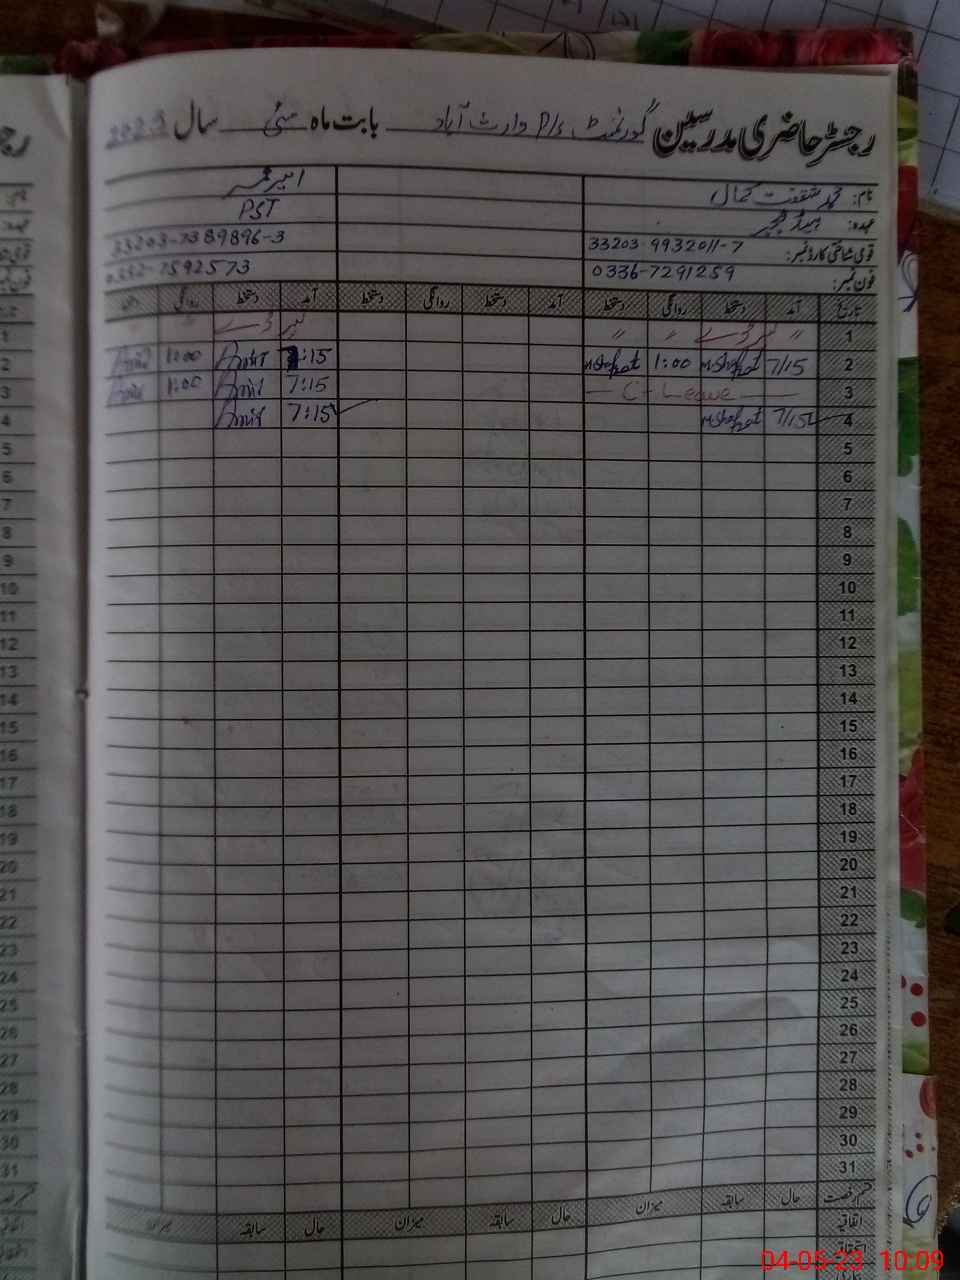 رجسٹر حاضری مدرسین گورنمنٹ P/s وارث آباد بابت ماہ مئی سال 2023
نام: محمد شفقت کمال
امیر
عہدہ: ہیڈ ٹیچر PST
قومی شناختی کارڈ نمبر: 33203-9932011-7 33203-7389896-3
فون نمبر: 0336-7291259 0332-7592573
تاریخ آمد دستخط روانگی دستخط آمد دستخط روانگی دستخط آمد دستخط روانگی دستخط
1 〃 لیبر ڈے 〃 〃 لیبر ڈے
2 7/15 mshafqat 1:00 mshafqat 7:15 Amir 1:00 Amir
3 C-Leave 7:15 Amir 1:00 Amir
4 7/15 mshafqat 7:15 Amir
5
6
7
8
9
10
11
12
13
14
15
16
17
18
19
20
21
22
23
24
25
26
27
28
29
30
31
قسم رخصت حال سابقہ میزان حال سابقہ میزان حال سابقہ میزان
اتفاقیہ
استحقاقی
04-05-23 10:09